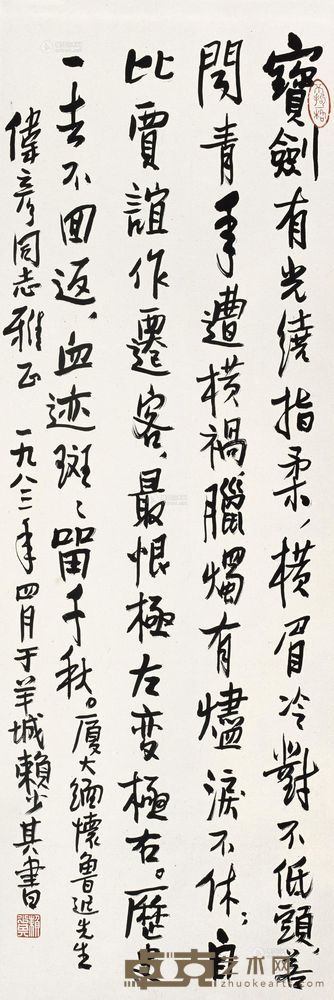 寶劍有光繞指柔，橫眉冷對不低頭，善
閱青年遭橫禍，臘燭有燼淚不休；自
比賈誼作遷客，最恨極左变極右。歷史
一去不回返，血迹斑斑留千秋。厦大緬懷魯迅先生
偉彥同志雅正 一九八三年四月于羊城賴少其書
卓克艺术网
www.zhuokearts.com